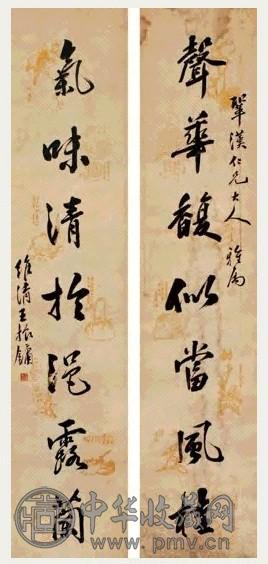 漢仁兄大人 雅屬
聲華馥似當風桂
氣味清於浥露蘭
維清王振鏞
中华收藏网
www.pmv.cn